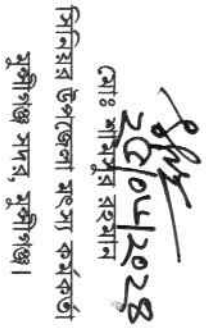 মোঃ শামসুর রহমান
সিনিয়র উপজেলা মৎস্য কর্মকর্তা
মুন্সীগঞ্জ সদর, মুন্সীগঞ্জ।